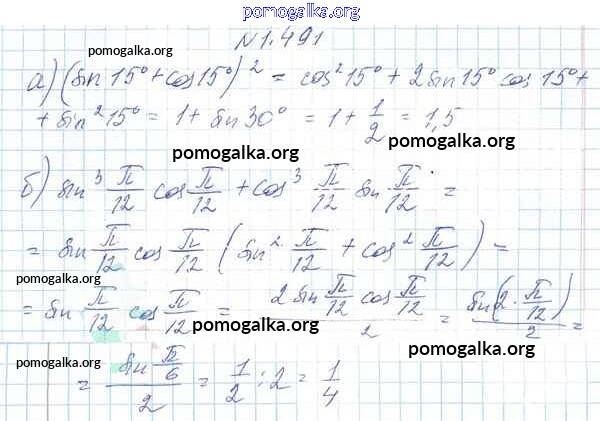 pomogalka.org
N 1.491
pomogalka.org
а) (sin 15° + cos 15°)² = cos² 15° + 2 sin 15° cos 15° +
+ sin² 15° = 1 + sin 30° = 1 + 1/2 = 1,5
pomogalka.org
pomogalka.org
б) sin³ π/12 cos π/12 + cos³ π/12 sin π/12 =
pomogalka.org
= sin π/12 cos π/12 (sin² π/12 + cos² π/12) =
pomogalka.org
pomogalka.org
= sin π/12 cos π/12 = (2 sin π/12 cos π/12)/2 = sin(2 · π/12)/2 =
pomogalka.org
pomogalka.org
= (sin π/6)/2 = 1/2 : 2 = 1/4
pomogalka.org